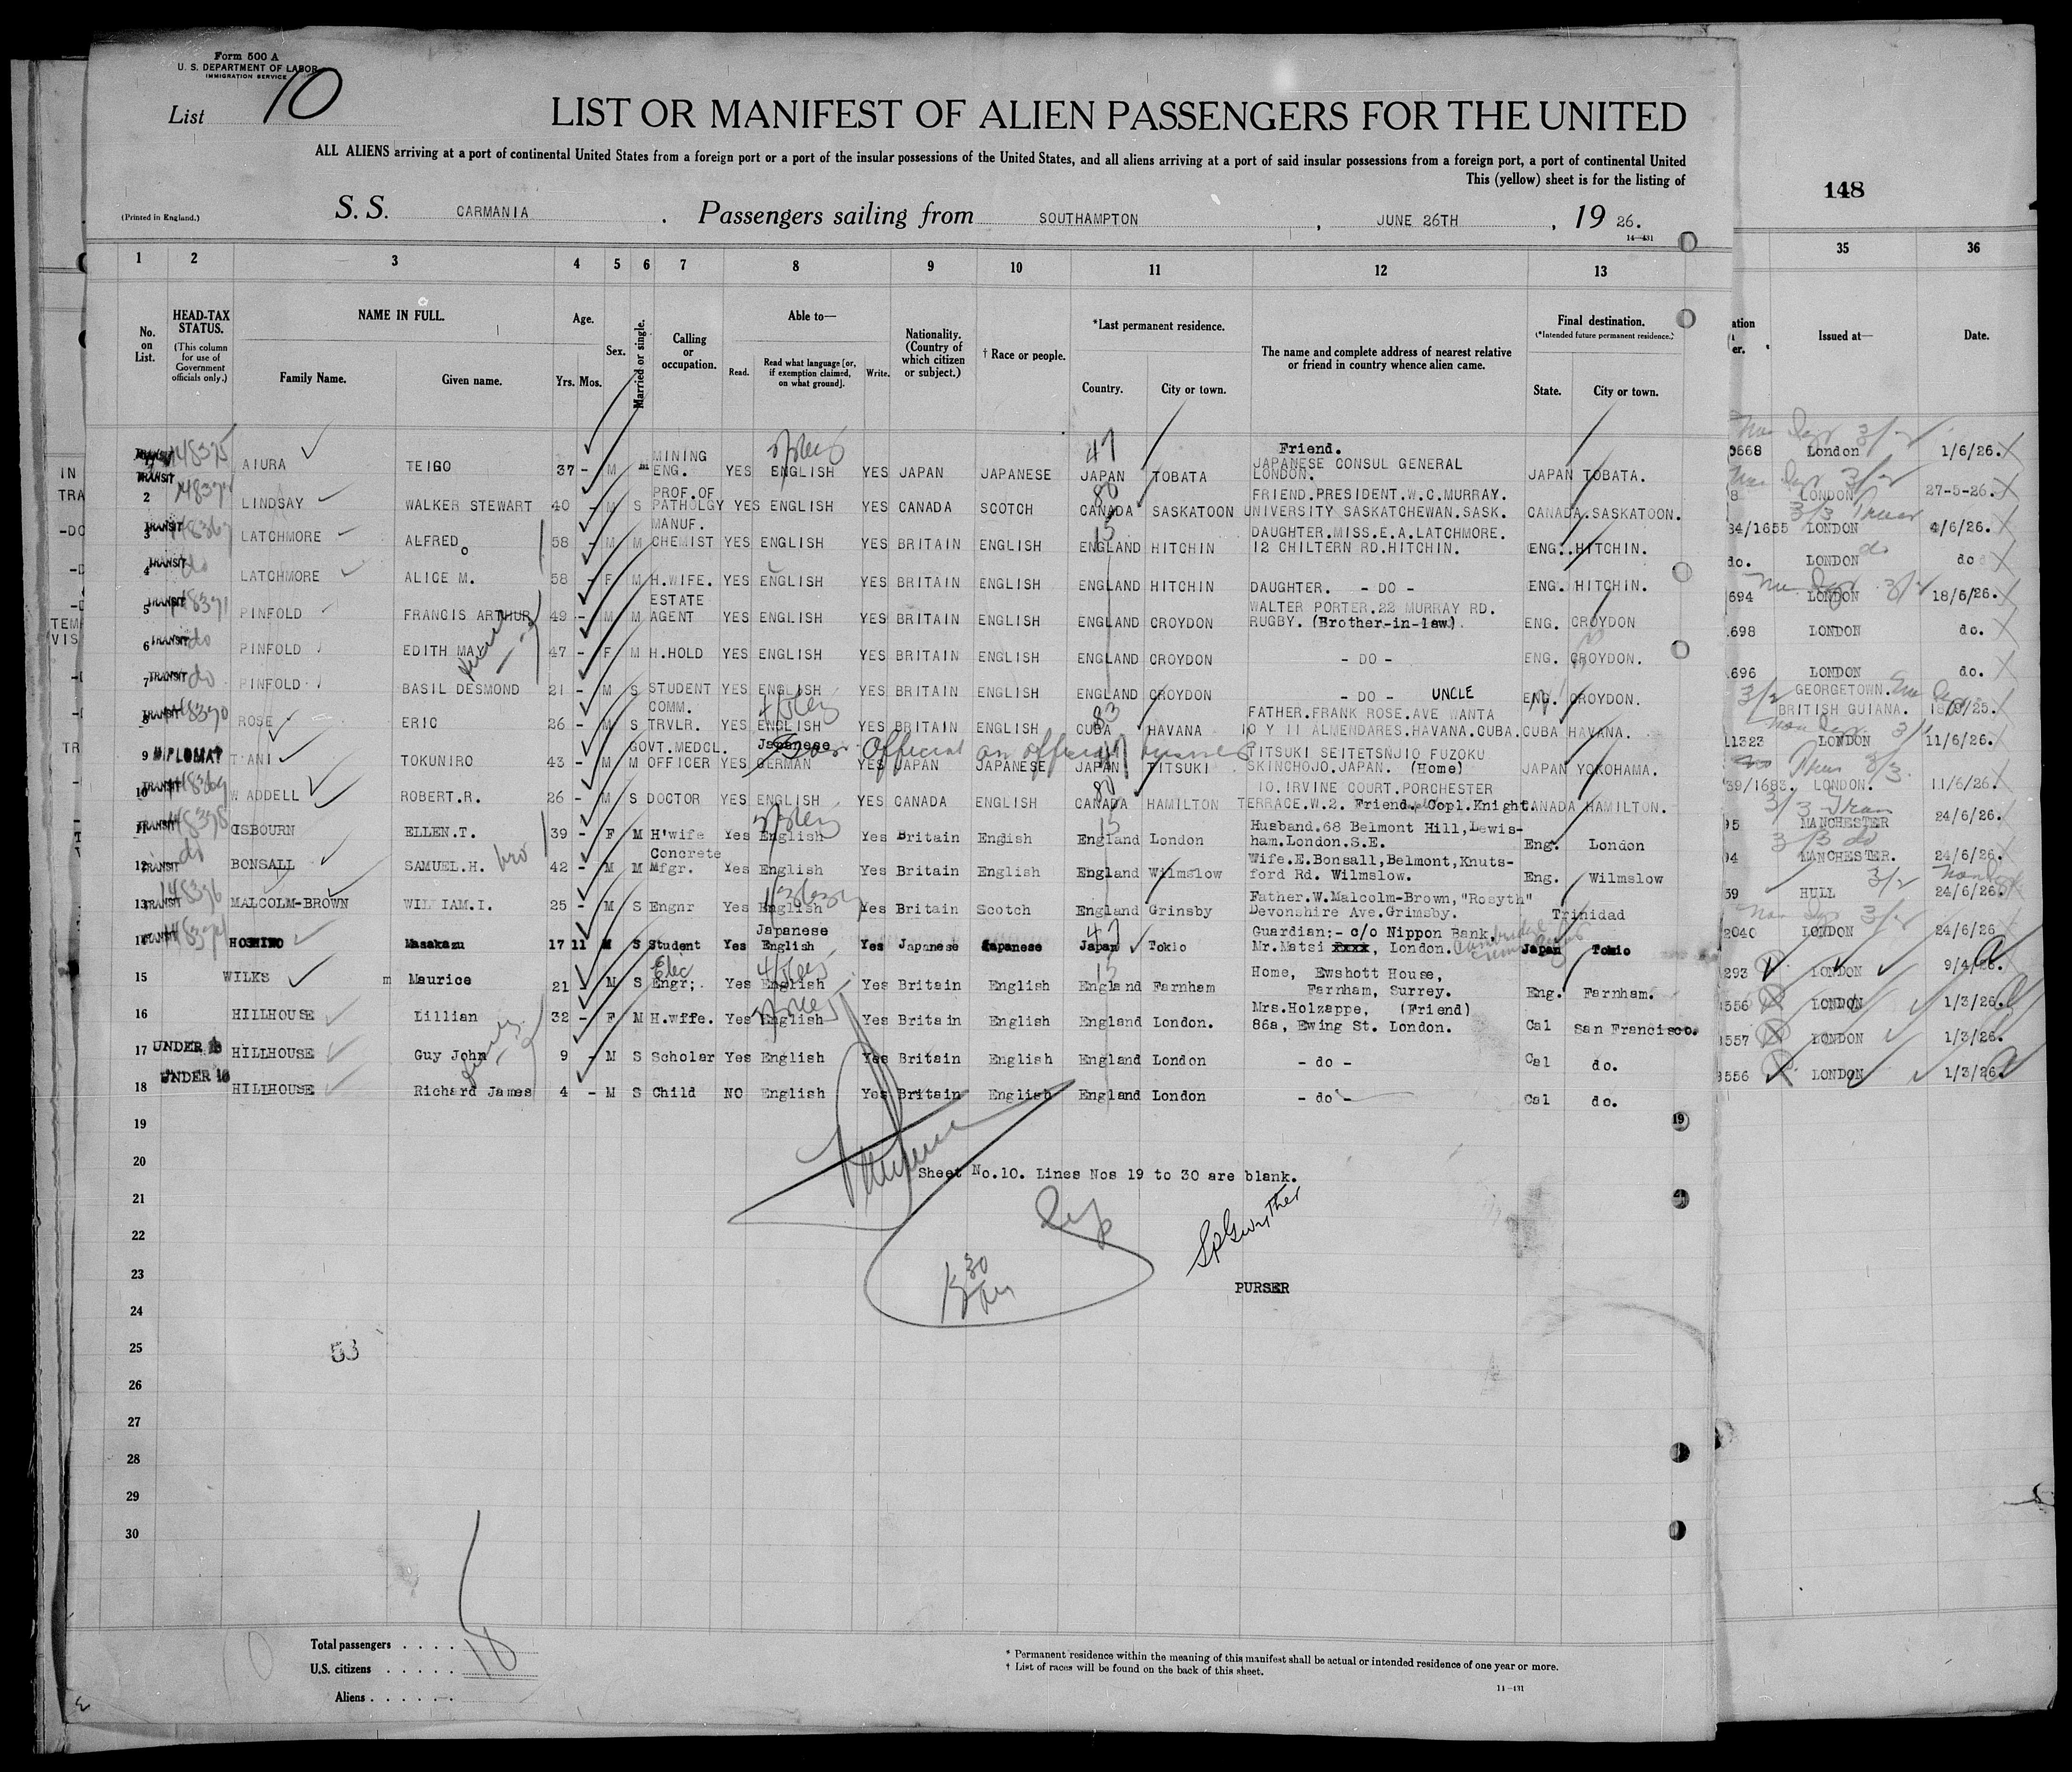 Form 500 A
U. S. DEPARTMENT OF LABOR
IMMIGRATION SERVICE
List 10
LIST OR MANIFEST OF ALIEN PASSENGERS FOR THE UNITED
ALL ALIENS arriving at a port of continental United States from a foreign port or a port of the insular possessions of the United States, and all aliens arriving at a port of said insular possessions from a foreign port, a port of continental United
This (yellow) sheet is for the listing of
148
(Printed in England.)
S. S. CARMANIA . Passengers sailing from SOUTHAMPTON , JUNE 26TH , 19 26.
14—431
1 2 3 4 5 6 7 8 9 10 11 12 13 35 36
No. on List.
HEAD-TAX STATUS.
(This column for use of Government officials only.)
NAME IN FULL.
Family Name. Given name.
Age.
Yrs. Mos.
Sex.
Married or single.
Calling or occupation.
Able to—
Read. Read what language [or, if exemption claimed, on what ground]. Write.
Nationality. (Country of which citizen or subject.)
† Race or people.
*Last permanent residence.
Country. City or town.
The name and complete address of nearest relative or friend in country whence alien came.
Final destination.
(*Intended future permanent residence.)
State. City or town.
Issued at— Date.
TRANSIT 148375 AIURA TEIGO 37 - M m MINING ENG. YES ENGLISH YES JAPAN JAPANESE JAPAN TOBATA Friend. JAPANESE CONSUL GENERAL LONDON. JAPAN TOBATA. 0668 London 1/6/26.
2 TRANSIT LINDSAY WALKER STEWART 40 - M S PROF.OF PATHOLGY YES ENGLISH YES CANADA SCOTCH CANADA SASKATOON FRIEND.PRESIDENT.W.C.MURRAY. UNIVERSITY SASKATCHEWAN.SASK. CANADA.SASKATOON. 8 LONDON 27-5-26.
3 TRANSIT LATCHMORE ALFRED 58 - M M MANUF. CHEMIST YES ENGLISH YES BRITAIN ENGLISH ENGLAND HITCHIN DAUGHTER.MISS.E.A.LATCHMORE. 12 CHILTERN RD.HITCHIN. ENG. HITCHIN. 34/1655 LONDON 4/6/26.
4 TRANSIT do LATCHMORE ALICE M. 58 - F M H.WIFE. YES ENGLISH YES BRITAIN ENGLISH ENGLAND HITCHIN DAUGHTER. - DO - ENG. HITCHIN. do. LONDON do
5 TRANSIT 148371 PINFOLD FRANCIS ARTHUR 49 - M M ESTATE AGENT YES ENGLISH YES BRITAIN ENGLISH ENGLAND CROYDON WALTER PORTER.22 MURRAY RD. RUGBY. (Brother-in-law). ENG. CROYDON 694 LONDON 18/6/26.
6 TRANSIT do PINFOLD EDITH MAY 47 - F M H.HOLD YES ENGLISH YES BRITAIN ENGLISH ENGLAND CROYDON - DO - ENG. CROYDON. 698 LONDON do.
7 TRANSIT do PINFOLD BASIL DESMOND 21 - M S STUDENT YES ENGLISH YES BRITAIN ENGLISH ENGLAND CROYDON - DO - UNCLE ENG. CROYDON. 696 LONDON do.
8 TRANSIT 148370 ROSE ERIC 26 - M S COMM. TRVLR. YES ENGLISH YES BRITAIN ENGLISH CUBA HAVANA FATHER.FRANK ROSE.AVE WANTA 10 Y 11 ALMENDARES.HAVANA.CUBA. CUBA HAVANA. GEORGETOWN. BRITISH GUIANA.
9 DIPLOMAT TANI TOKUNIRO 43 - M M GOVT.MEDCL. OFFICER YES Japanese GERMAN YES JAPAN JAPANESE JAPAN YITSUKI PITSUKI SEITETSNJIO FUZOKU SKINCHOJO.JAPAN. (Home) JAPAN YOKOHAMA. 11323 LONDON 11/6/26.
Gov. Official on official business
10 TRANSIT 148369 WADDELL ROBERT.R. 26 - M S DOCTOR YES ENGLISH YES CANADA ENGLISH CANADA HAMILTON 10. IRVINE COURT.PORCHESTER TERRACE.W.2. Friend. Copl.Knight. CANADA HAMILTON. 39/1683. LONDON. 11/6/26.
11 TRANSIT 148378 OSBOURN ELLEN.T. 39 - F M H'wife Yes English Yes Britain English England London Husband.68 Belmont Hill,Lewis- ham.London.S.E. Eng. London 95 MANCHESTER 24/6/26.
12 TRANSIT do BONSALL SAMUEL.H. 42 - M M Concrete Mfgr. Yes English Yes Britain English England Wilmslow Wife.E.Bonsall,Belmont,Knuts- ford Rd. Wilmslow. Eng. Wilmslow 94 MANCHESTER. 24/6/26.
13 TRANSIT 148376 MALCOLM-BROWN WILLIAM.I. 25 - M S Engnr Yes English Yes Britain Scotch England Grinsby Father.W.Malcolm-Brown,"Rosyth" Devonshire Ave.Grimsby. Trinidad 59 HULL 24/6/26.
14 TRANSIT HOSHINO Masakazu 17 11 M S Student Yes Japanese English Yes Japanese Japanese Japan Tokio Guardian:- c/o Nippon Bank, Mr.Matsi xxxx, London. Japan Tokio 2040 LONDON 24/6/26
15 WILKS m Maurice 21 - M S Elec Engr;. Yes English Yes Britain English England Farnham Home, Ewshott House, Farnham, Surrey. Eng. Farnham. 293 LONDON 9/4/26.
16 HILLHOUSE Lillian 32 - F M H.wffe. Yes English Yes Britain English England London. Mrs.Holzappe, (Friend) 86a, Ewing St. London. Cal San Francisco. 556 LONDON 1/3/26.
17 UNDER 16 HILLHOUSE Guy John 9 - M S Scholar Yes English Yes Britain English England London - do - Cal do. 557 LONDON 1/3/26.
18 UNDER 16 HILLHOUSE Richard James 4 - M S Child NO English Yes Britain English England London - do - Cal do. 556 LONDON 1/3/26.
19
20
Sheet No.10. Lines Nos 19 to 30 are blank.
21
22
23
PURSER
24
25
53
26
27
28
29
30
Total passengers . . . . 18
U.S. citizens . . . . .
Aliens . . . . . .
* Permanent residence within the meaning of this manifest shall be actual or intended residence of one year or more.
† List of races will be found on the back of this sheet.